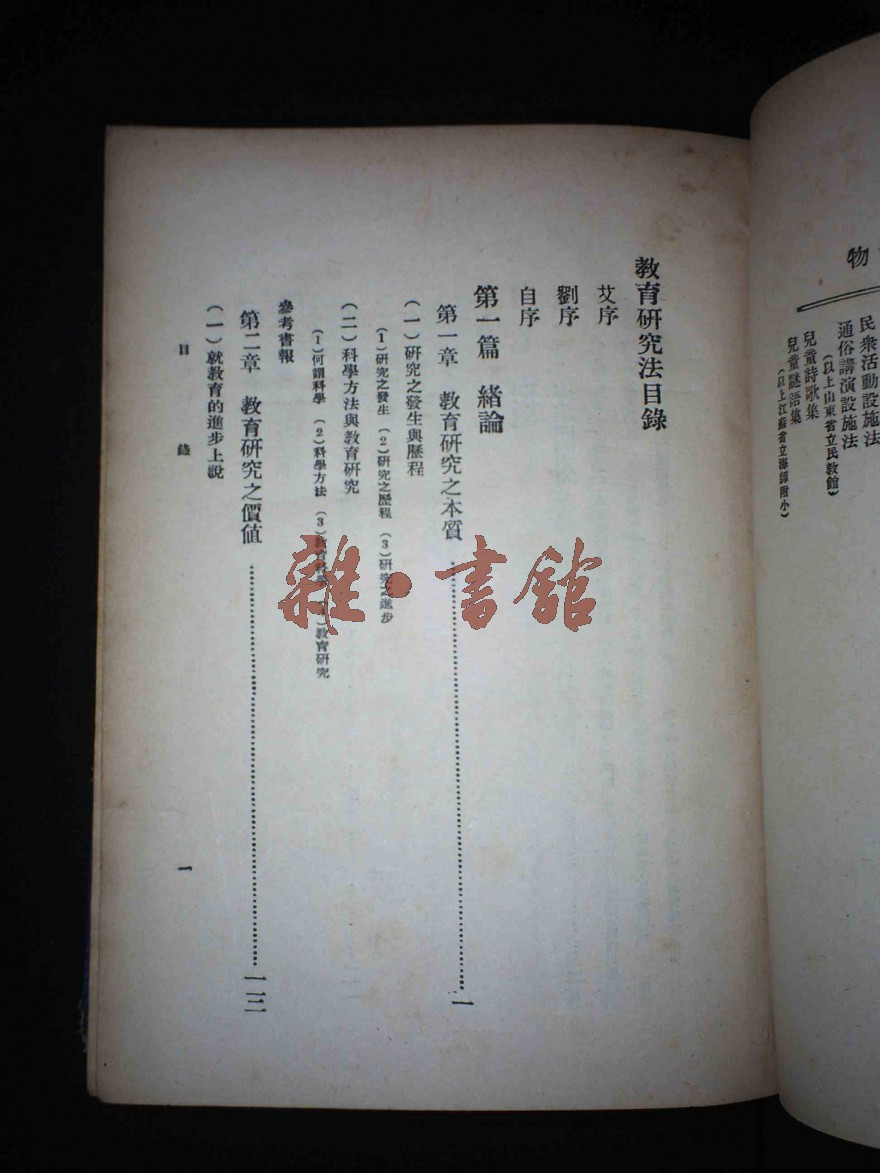 物
民衆活動設施法
通俗講演設施法
(以上山東省立民教館)
兒童詩歌集
兒童謎語集
(以上江蘇省立海師附小)
教育研究法目錄
艾序
劉序
自序
第一篇 緒論
第一章 教育研究之本質……一
(一)研究之發生與歷程
(1)研究之發生 (2)研究之歷程 (3)研究之進步
(二)科學方法與教育研究
(1)何謂科學 (2)科學方法 (3)教育科學 (4)教育研究
參考書報
第二章 教育研究之價值……一三
(一)就教育的進步上說
目 錄
一
雜·書館